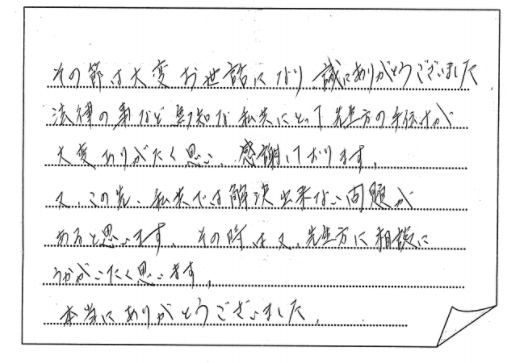 その節は大変お世話になり、誠にありがとうございました
法律の事など無知な私共にとって先生方の手伝けが
大変ありがたく思い、感謝しております。
又、この先、私共では解決出来ない問題が
あると思います。その時は又、先生方に相談に
うかがいたく思います。
本当にありがとうございました。